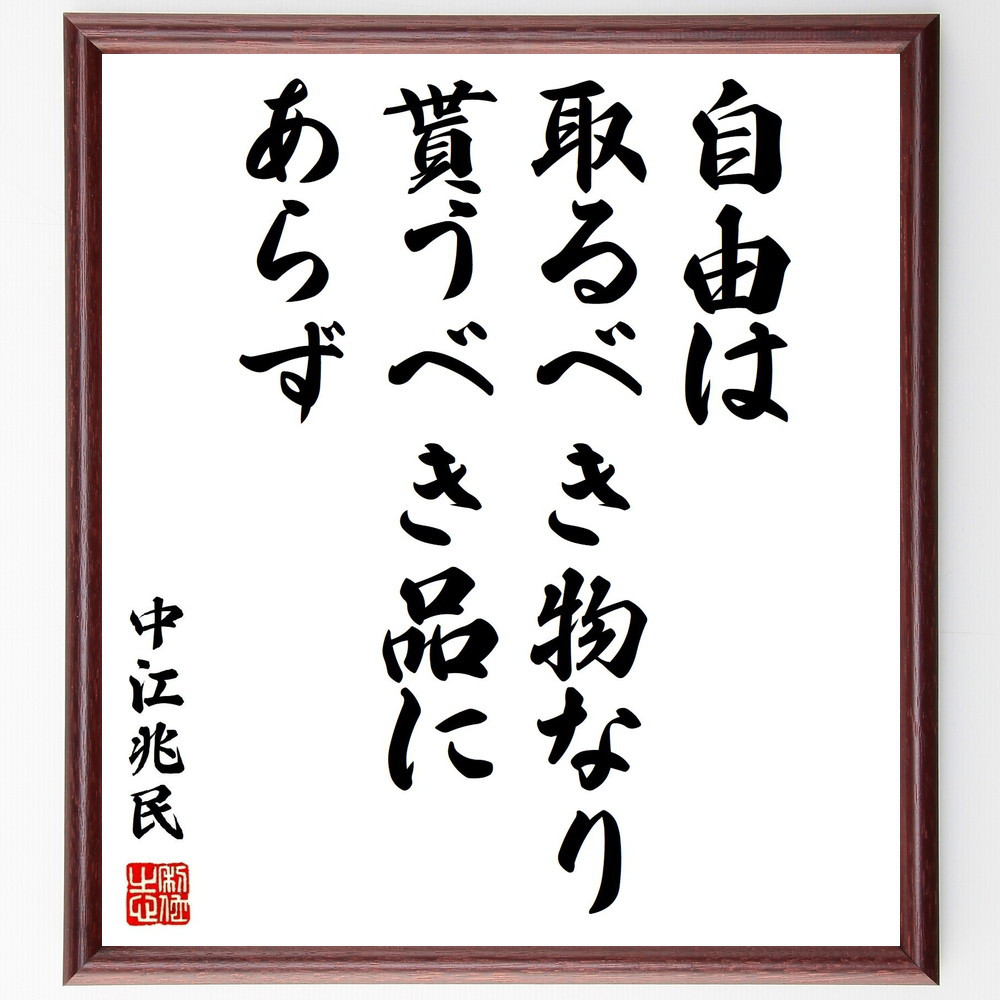 自由は
取るべき物なり
貰うべき品に
あらず
中江兆民